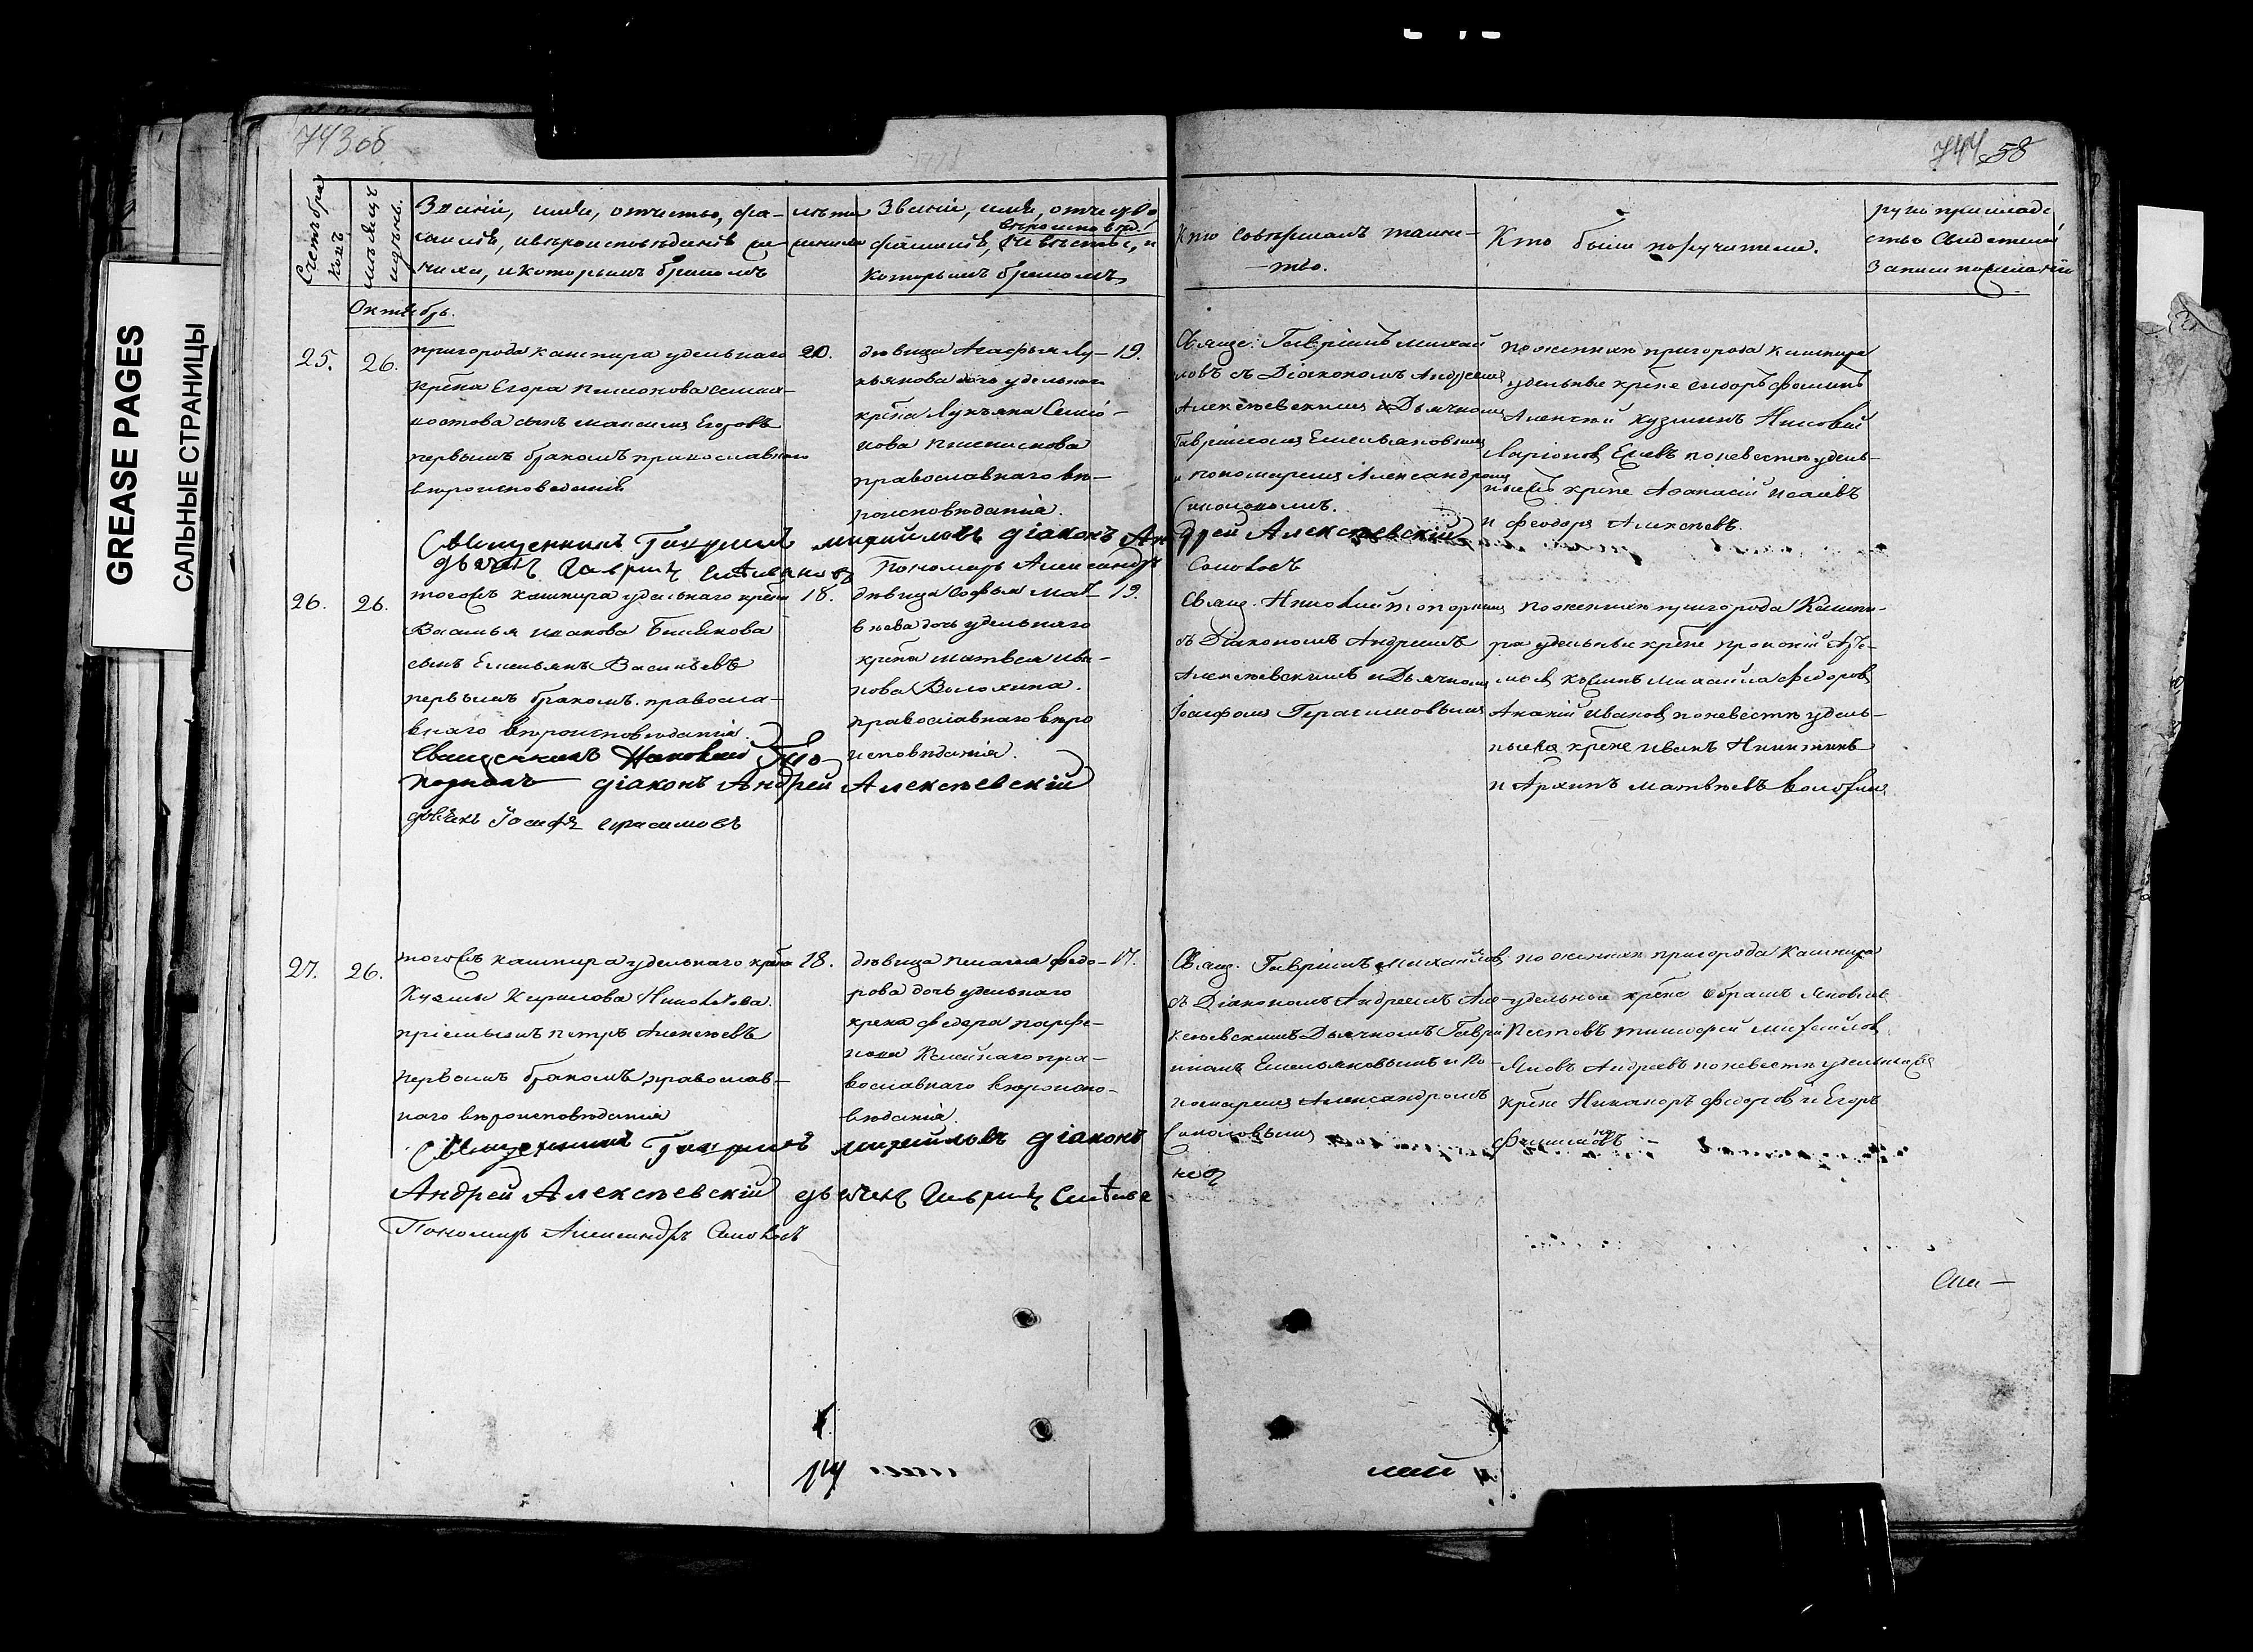 GREASE PAGES
САЛЬНЫЕ СТРАНИЦЫ
743об
744 58
Счетъ бра
ковъ
мѣсяцъ
и день.
Званіе, имя, отчество, фа-
милія, и вѣроисповѣданіе же
ниха, и которымъ бракомъ
лѣта
жениха
Званіе, имя, отчество
вѣроисповѣд.
фамилія, невѣсты, и
которымъ бракомъ
Кто совершалъ таин-
-тво.
Кто были поручители.
рукоприкладс
ство свидетелей
записи по желанію
Октябрь.
25.
26.
пригорода кашпира удельнаго
крѣна Егора
сынъ максимъ Егоровъ
первымъ бракомъ православнаго
вѣроисповеданія
20.
дѣвица Агафья Лу-
кьянова дочь удельнаго
крѣна Лукьяна Семіо-
нова
православнаго вѣ-
роисповѣданія.
19.
Свяще: Гавріилъ михай
ловъ съ Діакономъ Андреемъ
Алексѣевскимъ и Дьячкомъ
Гавріиломъ Емельяновымъ
и пономаремъ Александромъ
Соколовымъ.
по женихѣ пригорода кашпира
удельные крѣне сидоръ фоминъ
Алексѣй кузминъ Николай
Ларіоновъ по невестѣ удель-
ныежъ крѣне Афанасій Исаевъ
и феодоръ Алексѣевъ.
Священникъ Гавріилъ михайловъ діаконъ Андрей Алексѣевскій
дьячекъ Гавриилъ Емельяновъ Пономарь Александръ Соколовъ
26.
26.
тогожъ кашпира удельнаго крѣна
Василья иванова
сынъ Емельянъ Васильевъ
первымъ бракомъ. правосла-
внаго вѣроисповѣданія.
18.
дѣвица Софья мат-
вѣева дочь удельнаго
крѣна матвея ива-
нова Волохина.
православнаго вѣро
исповѣданія.
19.
Свящ. Николай топорнинъ
съ Діакономъ Андреемъ
Алексѣевскимъ и Дьячкомъ
Іосифомъ Герасимовымъ
по женихѣ пригорода Кашпи-
ра удельные крѣне прокофій Арте-
михаила федоровъ
Ивановъ по невестѣ удель-
ныежъ крѣне иванъ Никитинъ
и Архипъ матвѣевъ волохинъ
Священникъ Николай То
порнинъ діаконъ Андрей Алексѣевскій
дьячекъ Іосифъ герасимовъ
27.
26.
тогожъ кашпира удельнаго крѣна
Кузмы Кирилова
пріемышъ петръ Алексѣевъ
первымъ бракомъ православ-
наго вѣроисповѣданія
18.
дѣвица пелагея федо-
рова дочь удельнаго
крена федора парфе-
нова пра-
вославнаго вѣроиспо-
вѣданія
17.
Свящ. Гавріилъ михайловъ
съ Діакономъ Андреемъ Але
ксѣевскимъ Дьячкомъ Гаврі
иломъ Емельяновымъ и по-
номаремъ Александромъ
Соколовымъ
по женихѣ пригорода Кашпира
удельные крѣне Абрамъ Яковлевъ
Пестовъ тимофей михайлов
Яковъ Андреевъ по невестѣ удельныежъ
крѣне Никаноръ федоровъ и Егоръ
Филимоновъ
Священникъ Гавріилъ михайловъ діаконъ
Андрей Алексѣевскій дьячекъ Гавриилъ Емельяновъ
Пономарь Александръ Соколовъ